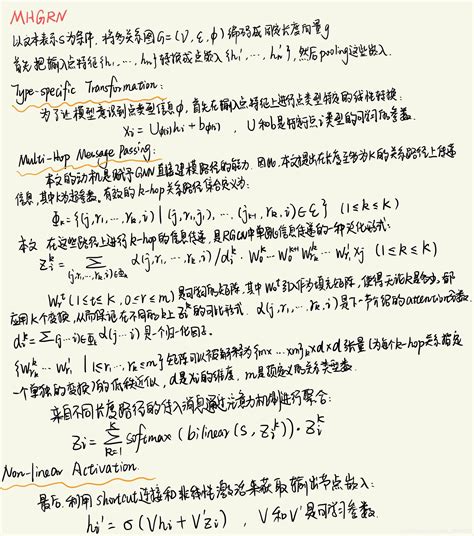 MHGRN
以文本表示s为条件, 将多关系图G=(V, ε, φ) 编码成固定长度向量g
首先把输入点特征{h₁, …, hₙ}转换成点嵌入{h₁', …, hₙ'}, 然后pooling这些嵌入.
Type-specific Transformation:
为了让模型意识到点类型信息φ, 首先在输入点特征上进行点类型特殊的线性转换:
xᵢ = U_φ(i) hᵢ + b_φ(i) , U和b是特指点i类型的可学习参数.
Multi-Hop Message Passing:
本文的动机是赋予GNN直接建模路径的能力. 因此, 本文提出在长度至多为K的关系路径上传递
信息, 其中K为超参数. 有效的k-hop关系路径集合定义为:
Φₖ = {(j, r₁, …, rₖ, i) | (j, r₁, j₁), …, (jₖ₋₁, rₖ, i) ∈ ε} (1 ≤ k ≤ K)
本文在这些路径上进行k-hop的信息传递, 是RGCN中单跳信息传递的一种泛化形式:
zᵢᵏ = Σ_(j,r₁,…,rₖ,i)∈Φₖ α(j, r₁, …, rₖ, i)/dᵢᵏ · W₀ᴷ … W₀ᵏ⁺¹ W_rₖᵏ … W_r₁¹ xⱼ (1 ≤ k ≤ K)
Wᵣᵗ (1≤t≤K, 0≤r≤m) 是可学习的矩阵, 其中W₀ᵗ引入作为填充矩阵, 使得无论k是多少, 都
应用K个变换, 从而保证在不同的k上zᵢᵏ的可比形式. α(j, r₁, …, rₖ, i) 是下一节介绍的attention分数.
dᵢᵏ = Σ(j…i)∈Φₖ α(j…i) 是一个归一化因子.
{W_rₖᵏ … W_r₁¹ | 1≤r₁, …, rₖ≤m} 矩阵可以被解释为{m×…×m}ₖ×d×d张量(为每个k-hop关系指定
一个单独的变换)的低秩近似, d是xᵢ的维度, m是预定义的关系类型数.
来自不同长度路径的传入消息通过注意力机制进行聚合:
zᵢ = Σ_{k=1}^{K} softmax (bilinear (s, zᵢᵏ)) · zᵢᵏ
Non-linear Activation
最后, 利用shortcut连接和非线性激活来获取输出节点嵌入:
hᵢ' = σ(Vhᵢ + V'zᵢ) , V和V'是可学习参数.